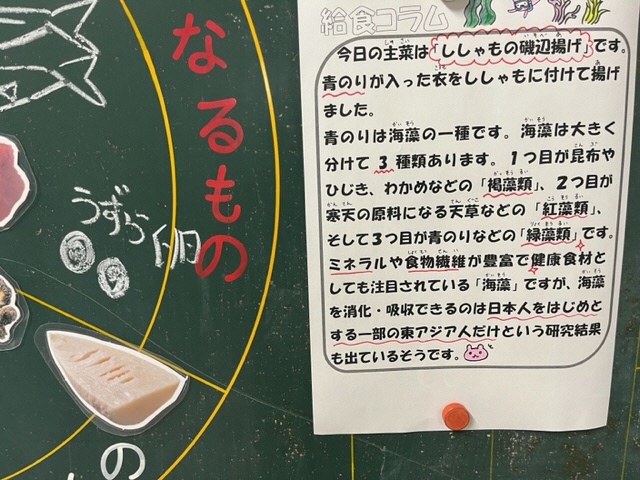 なるもの
うずら卵
の
給食コラム
今日の主菜は「ししゃもの磯辺揚げ」です。
青のりが入った衣をししゃもに付けて揚げ
ました。
青のりは海藻の一種です。海藻は大きく
分けて3種類あります。1つ目が昆布や
ひじき、わかめなどの「褐藻類」、2つ目が
寒天の原料になる天草などの「紅藻類」、
そして3つ目が青のりなどの「緑藻類」です。
ミネラルや食物繊維が豊富で健康食材と
しても注目されている「海藻」ですが、海藻
を消化・吸収できるのは日本人をはじめと
する一部の東アジア人だけという研究結果
も出ているそうです。